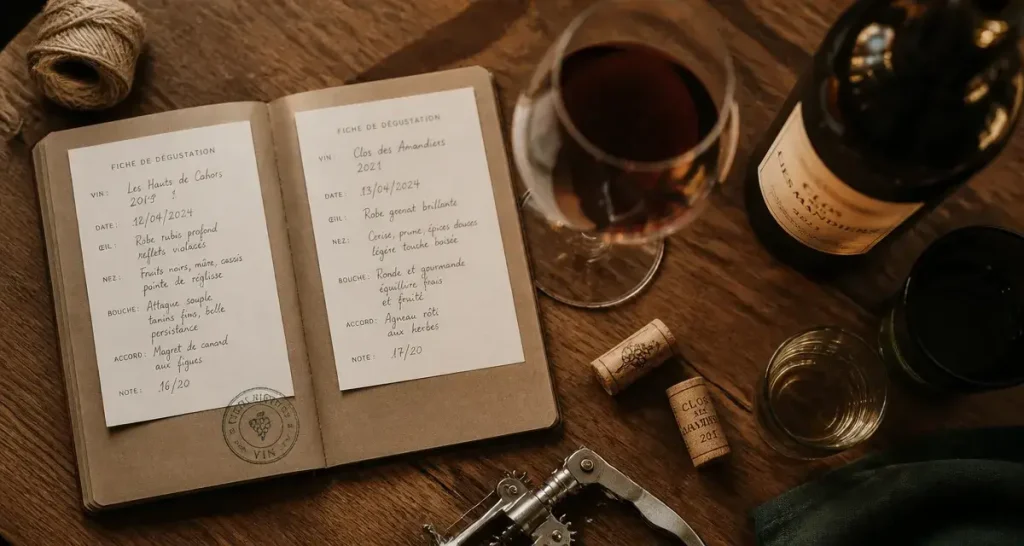 FICHE DE DÉGUSTATION
VIN : Les Hauts de Cahors
2019 !
DATE : 12/04/2024
ŒIL : Robe rubis profond
reflets violacés
NEZ : Fruits noirs, mûre, cassis
pointe de réglisse
BOUCHE : Attaque souple
tanins fins, belle
persistance
ACCORD : Magret de canard
aux figues
NOTE : 16/20
VIN
FICHE DE DÉGUSTATION
VIN Clos des Amandiers
2021
DATE : 13/04/2024
ŒIL : Robe grenat brillante
NEZ : Cerise, prune, épices douces
légère touche boisée
BOUCHE : Ronde et gourmande
équillure frais
et fruité
ACCORD : Agneau rôti
aux herbes
NOTE : 17/20
CLOS
201